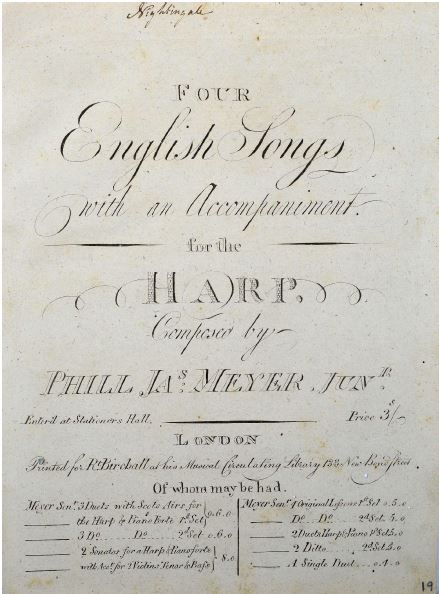 Nightingale
FOUR
English Songs
with an Accompaniment.
for the
HARP.
Composed by
PHILL JAS. MEYER, JUNR.
Enter'd at Stationers Hall.
Price 3s/-
LONDON
Printed for Rt. Birchall at his Musical Circulating Library 133 New Bond street
Of whom may be had.
Meyer Senr. 3 Duets with Scots Airs for
the Harp & Piano Forte 1st Set 0.6.0
3 Do. Do. 2d Set 0.6.0
2 Sonatas for a Harp & Pianoforte
with Accts. for 2 Violins Tenor & Bass 8.0
Meyer Senr. 4 Original Lessons 1st Set 0.5.0
Do. Do. 2d Set 5.0
2 Duets Harp & Piano 1st Set 5.0
2 Ditto 2d Set 5.0
A Single Duet 0.4.0
19